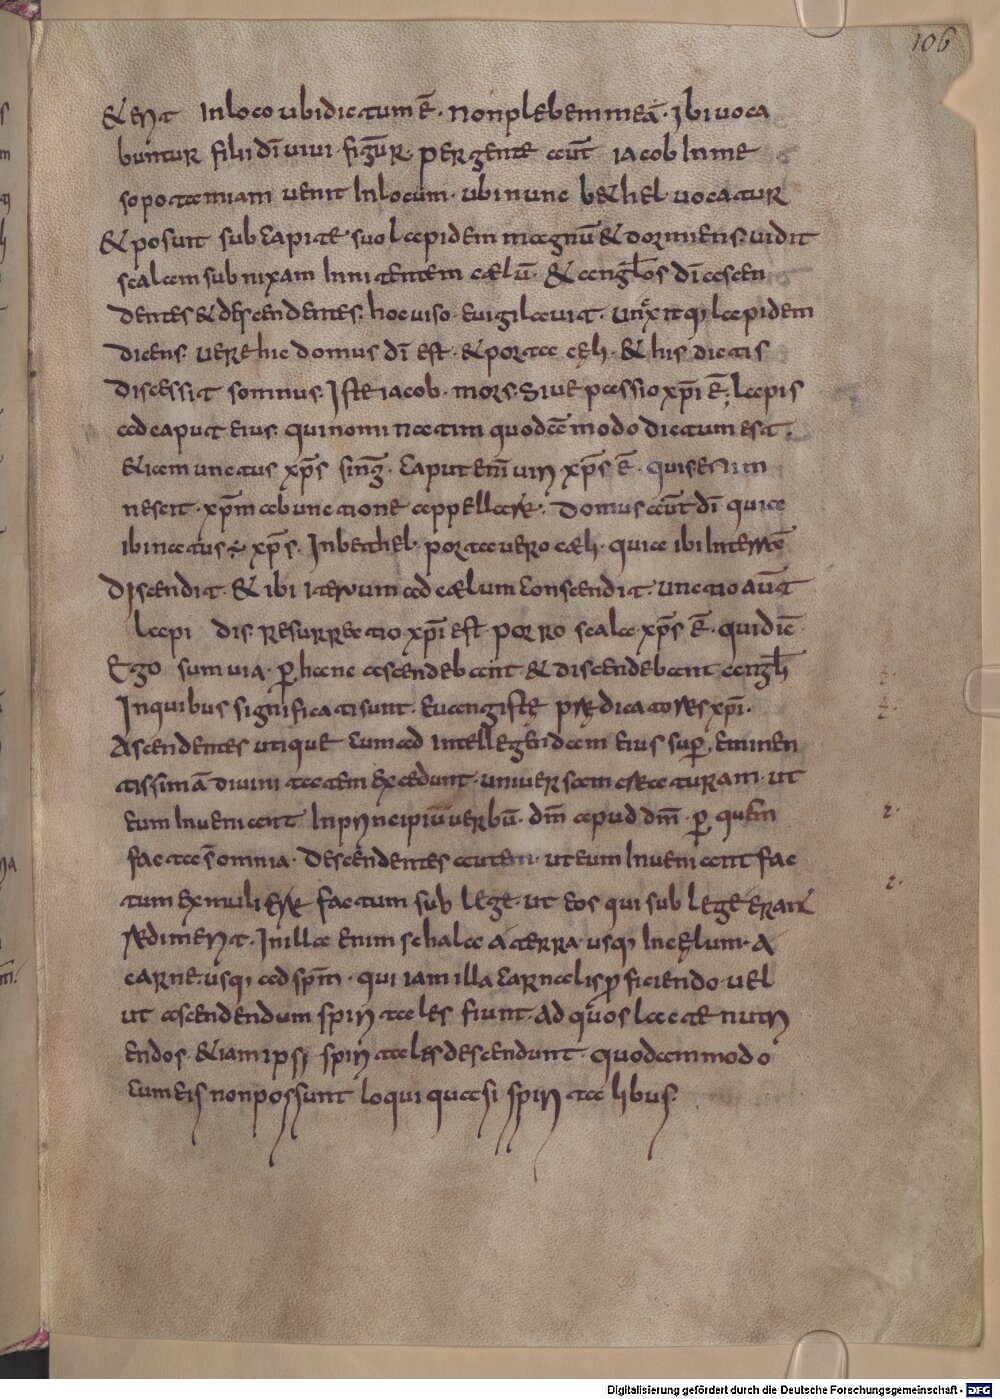 106
& erit In loco ubi dictum ē. non plebem meā. ibi uoca
buntur filii dī uiui. figūr. pergente aūt iacob In me
sopotamiam uenit In locum. ubi nunc bethel. uocatur
& posuit sub capite suo lapidem magnū & dormiens. uidit
scalam subnixam Innitentem cælū. & anglos dī ascen
dentes & descendentes. hoc uiso. euigilauit. unxitq; lapidem
dicens. uere hic domus dī est. & porta cęli. & his dictis
discessit somnus. Iste iacob. mors. siue passio xpī ē. lapis
ad caput eius. qui nominatim quodāmodo dictum est.
& iam unctus xp̄s sing̅. caput enī uiri xp̄s ē. quis enim
nescit. xp̄m ab unctione appellare. domus aūt dī quia
ibi natus ÷ xp̄s. In bethel. porta uero cæli. quia ibi In terrā
discendit. & ibi iterum ad cælum conscendit. unctio aūt
lapi dis. resurrectio xpī est. porro scala xp̄s ē. qui dic̄
Ego sum uia. ꝑ hanc ascendebant & discendebant angli
In quibus significati sunt. euangistę prædicatores xpī.
Ascendentes utique cum ad intellegendam eius suꝑ eminen
tissimā diuinitatem excedunt. uniuersam creaturam. ut
eum Inueniant In principiū uerbū. dm̄ apud dm̄. ꝑ quem
facta s̄ omnia. descendentes autem. ut eum Inueniant fac
tum ex muliere factum sub lege. ut eos qui sub lege erant
redimerit. In illa enim schala a terra. usq; In cęlum. a
carne. usq; ad spm̄. qui iam illa carnalis ꝓficiendo. uel
ut ascendendum spiritales fiunt. ad quos lacte nutri
endos. & iam ipsi spiritales descendunt. quodammodo
cum eis non possunt loqui quasi spiritalibus.
Digitalisierung gefördert durch die Deutsche Forschungsgemeinschaft - DFG